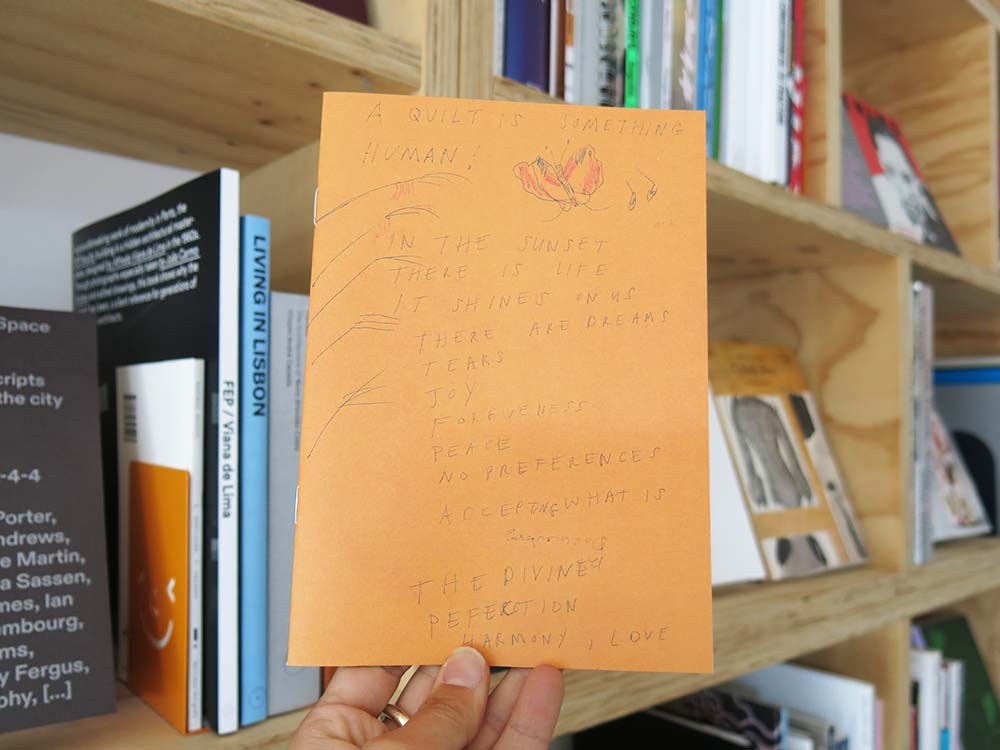 A QUILT IS SOMETHING
HUMAN!
IN THE SUNSET
THERE IS LIFE
IT SHINES ON US
THERE ARE DREAMS
TEARS
JOY
FORGIVENESS
PEACE
NO PREFERENCES
ACCEPTING WHAT IS
THE DIVINE
PEFECTION
HARMONY, LOVE
Space
cripts
the city
-4-4
Porter,
ndrews,
e Martin,
a Sassen,
mes, Ian
embourg,
ms,
y Fergus,
phy, [...]
FEP / Viana de Lima
LIVING IN LISBON